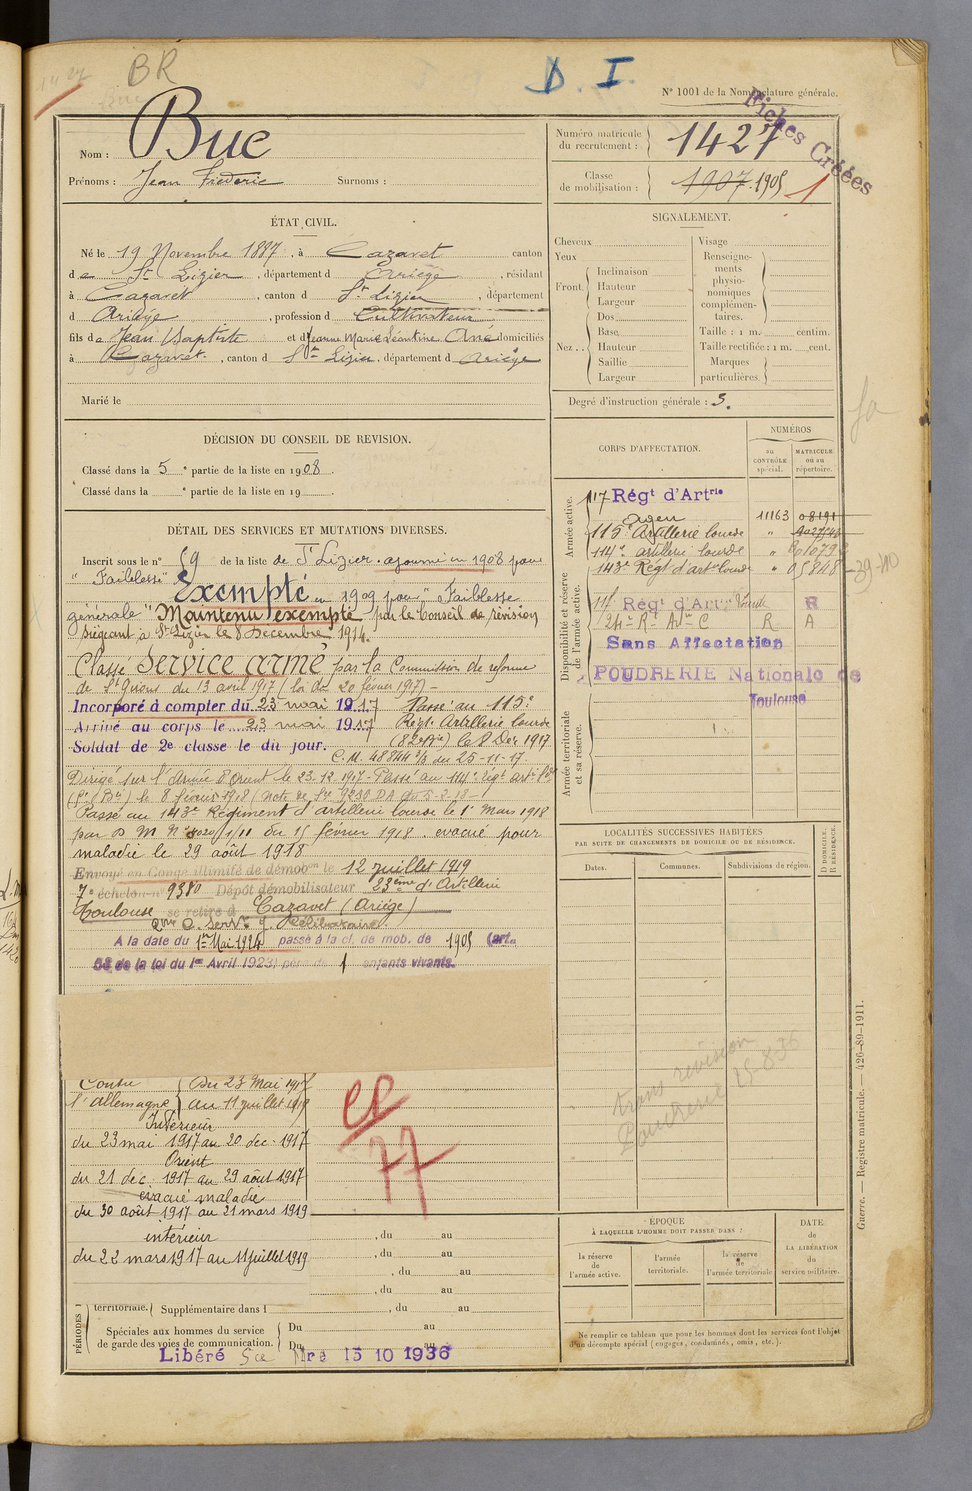 BR
D. I.
N° 1001 de la Nomenclature générale.
Fiches Créées
Nom : Buc
Prénoms : Jean Frédéric Surnoms :
Numéro matricule du recrutement : 1427
Classe de mobilisation : 1907. 1905 1
ÉTAT CIVIL.
Né le 19 Novembre 1887, à Cazavet canton
de St Lizier, département d Ariège, résidant
à Cazavet, canton d St Lizier, département
d Ariège, profession d Cultivateur
fils de Jean Baptiste et d Jeanne Marie Léontine Ané domiciliés
à Cazavet, canton d St Lizier, département d Ariège
Marié le
SIGNALEMENT.
Cheveux
Yeux
Front.
Inclinaison
Hauteur
Largeur
Dos
Base
Nez . .
Hauteur
Saillie
Largeur
Visage
Renseignements physionomiques complémentaires.
Taille : 1 m. centim.
Taille rectifiée : 1 m. cent.
Marques particulières.
Degré d'instruction générale : 3.
DÉCISION DU CONSEIL DE REVISION.
Classé dans la 5 e partie de la liste en 1908.
Classé dans la e partie de la liste en 19
DÉTAIL DES SERVICES ET MUTATIONS DIVERSES.
Inscrit sous le n° 59 de la liste de St Lizier. ajourné en 1908 pour
" Faiblesse
Exempté en 1909 pour " Faiblesse
générale " Maintenu exempté par le Conseil de révision
siégeant à St Lizier le 8 Décembre 1914.
Classé Service armé par la Commission de réforme
de St Girons du 13 avril 1917 (loi du 20 février 1917) -
Incorporé à compter du 23 mai 1917 Passé au 115e
Arrivé au corps le 23 mai 1917 Régt Artillerie lourde
Soldat de 2e classe le dit jour. (82e Bie) le 8 Dec 1917
C.M. 48844 3/3 du 25-11-17.
Dirigé sur l'Armée d'Orient le 23.12.1917 - Passé au 114e Régt artie lde
le 8 février 1918
Passé au 143e Régiment d'artillerie lourde le 1er Mars 1918
par D M N° 1/11 du 15 février 1918. evacué pour
maladie le 29 août 1918
Envoyé en Congé illimité de démobon le 12 juillet 1919
7e échelon n° 9380 Dépôt démobilisateur 23ème d'Artillerie
Toulouse se retire à Cazavet (Ariège)
A la date du 1er Mai 1924 passé à la cl. de mob. de 1905 (art.
58 de la loi du 1er Avril 1923) père de 1 enfants vivants.
Contre l'allemagne
Du 23 Mai 1917
au 11 juillet 1919
Intérieur
du 23 mai 1917 au 20 dec. 1917
Orient
du 21 déc. 1917 au 29 août 1917
evacué maladie
du 30 août 1917 au 21 mars 1919
intérieur
du 22 mars 1917 au 11 juillet 1919
, du au
, du au
, du au
, du au
PÉRIODES
territoriale. Supplémentaire dans l , du au
Spéciales aux hommes du service de garde des voies de communication.
Du au
Du au
Libéré 15 10 1936
CORPS D'AFFECTATION.
NUMÉROS
au CONTRÔLE spécial.
MATRICULE ou au répertoire.
Armée active.
117 Régt d'Artrie 11163 08191
Agen
115e Artillerie lourde "
114e artillerie lourde "
143e Régt d'artie lourde "
Disponibilité et réserve de l'armée active.
Régt d'Artrie lourde R
24e R A C R A
Sans Affectation
POUDRERIE Nationale de
Toulouse
Armée territoriale et sa réserve.
LOCALITÉS SUCCESSIVES HABITÉES
PAR SUITE DE CHANGEMENTS DE DOMICILE OU DE RÉSIDENCE.
Dates.
Communes.
Subdivisions de région.
D DOMICILE.
R RÉSIDENCE.
trans révision
Poudrerie
ÉPOQUE
À LAQUELLE L'HOMME DOIT PASSER DANS :
la réserve de l'armée active.
l'armée territoriale.
la réserve de l'armée territoriale
DATE DE LA LIBÉRATION du service militaire.
Ne remplir ce tableau que pour les hommes dont les services font l'objet
d'un décompte spécial (engagés, condamnés, omis, etc.).
Guerre. — Registre matricule. — 426-89-1911.